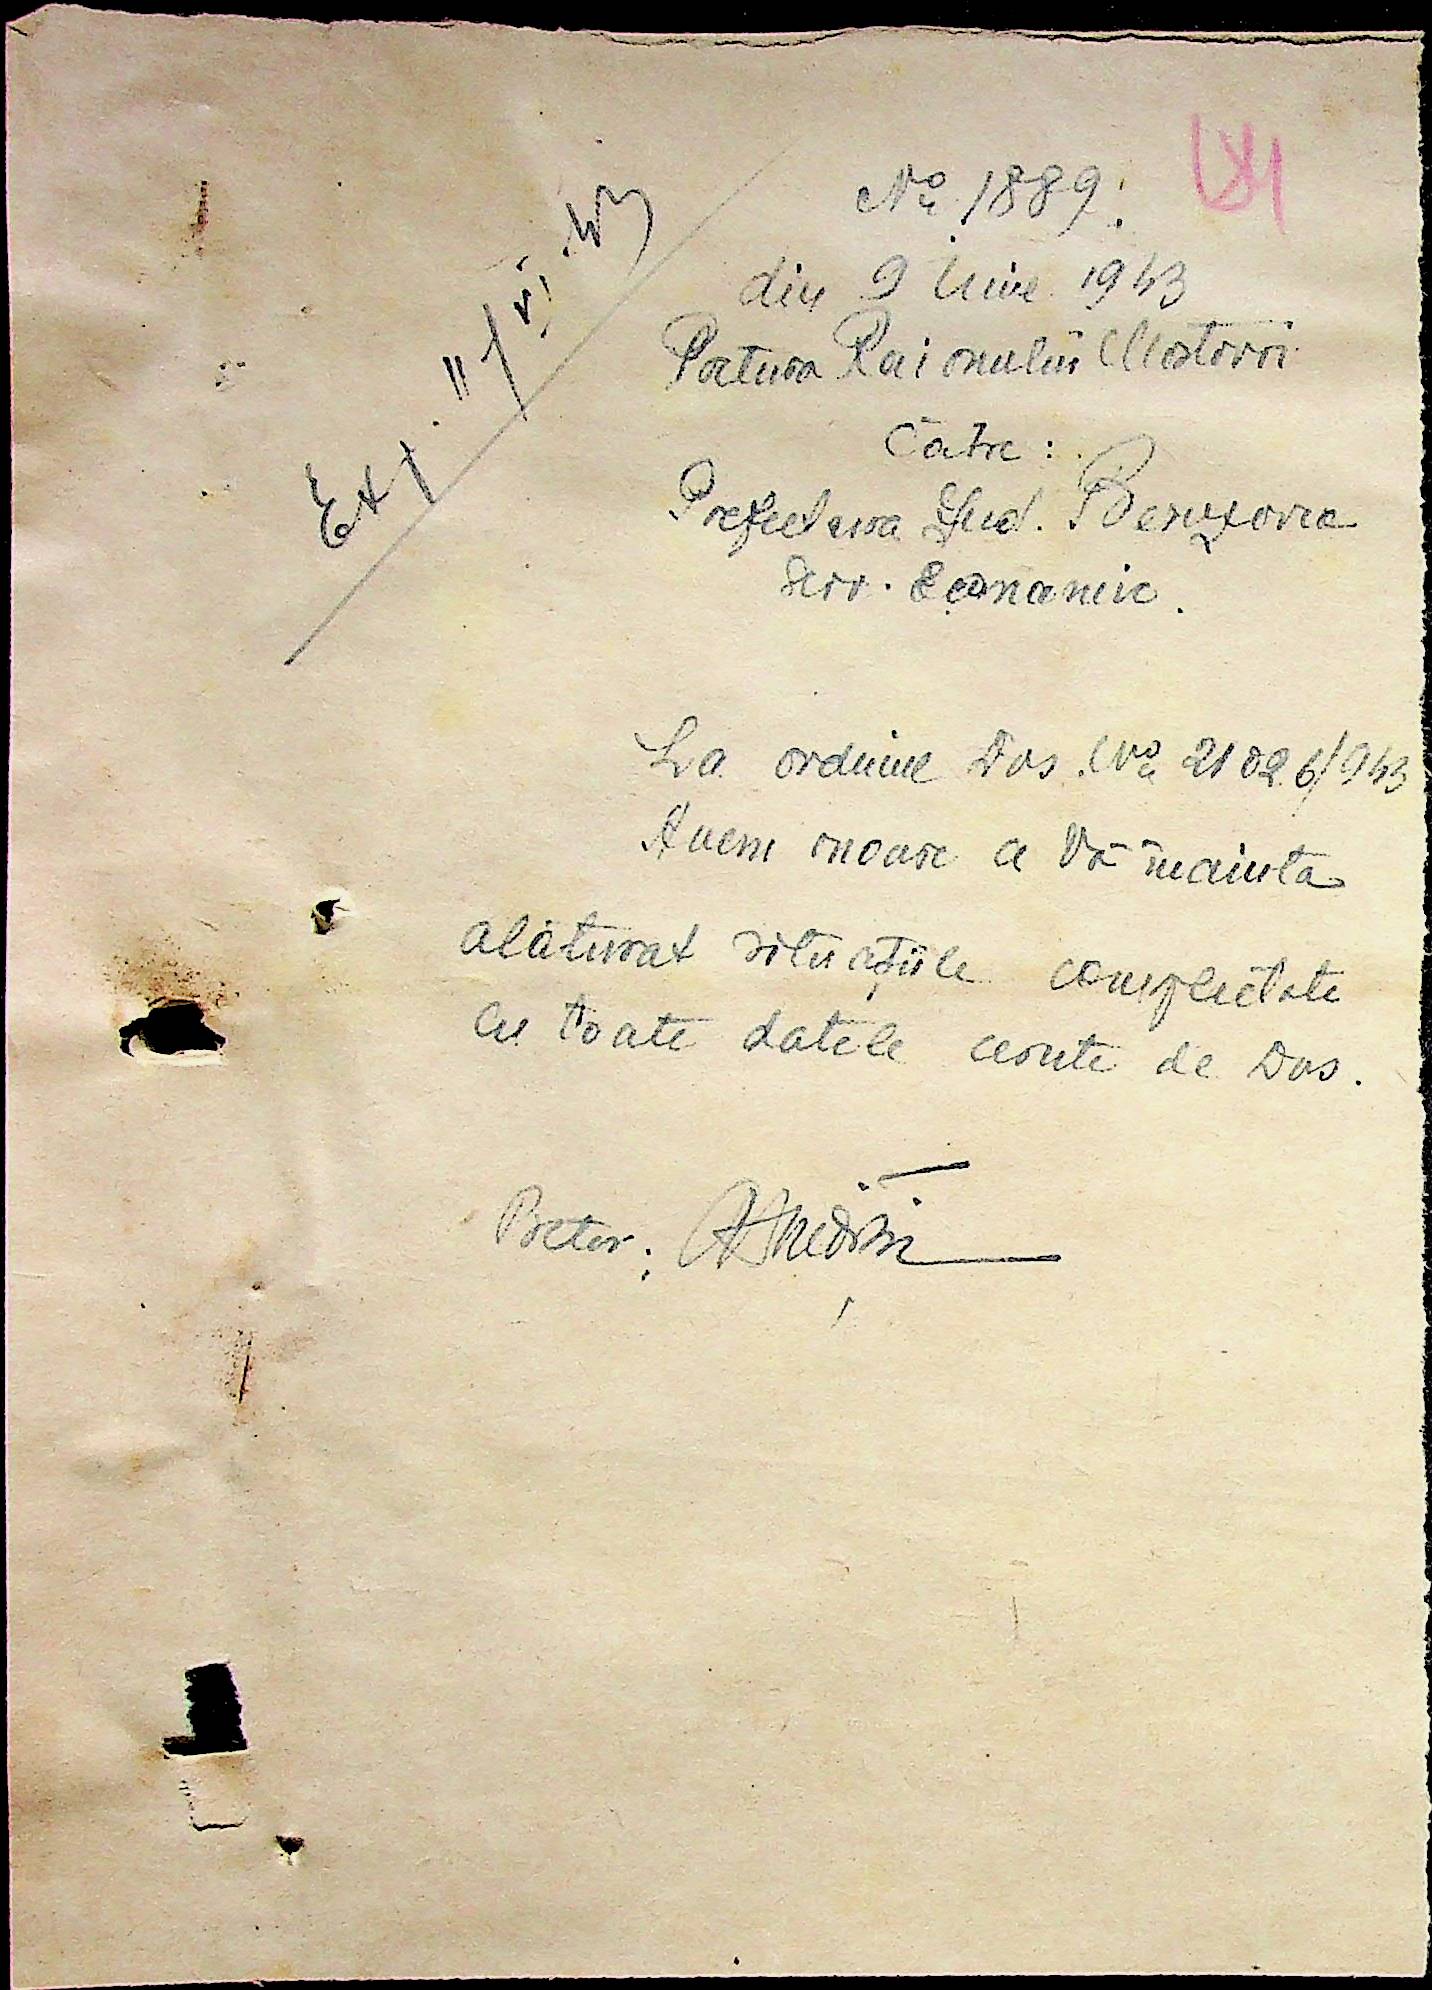 No 1889.
din 9 Iunie 1943
Pretura Raionului Mostovoi
Către :
Prefectura Jud. Berezovca
Serv. Economic.
Exp. 11/VI. 43
La ordinul Dvs. No 21026/943
Avem onoare a Vă înainta
alăturat situațiile complectate
cu toate datele cerute de Dvs.
Pretor: